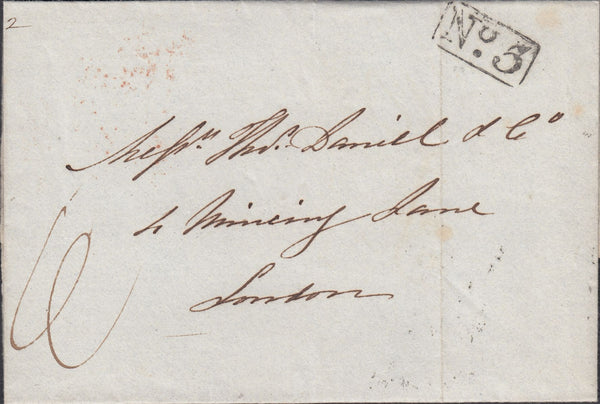 2
No. 3
Messrs. Thos. Daniel & Co
4 Mincing Lane
London
6